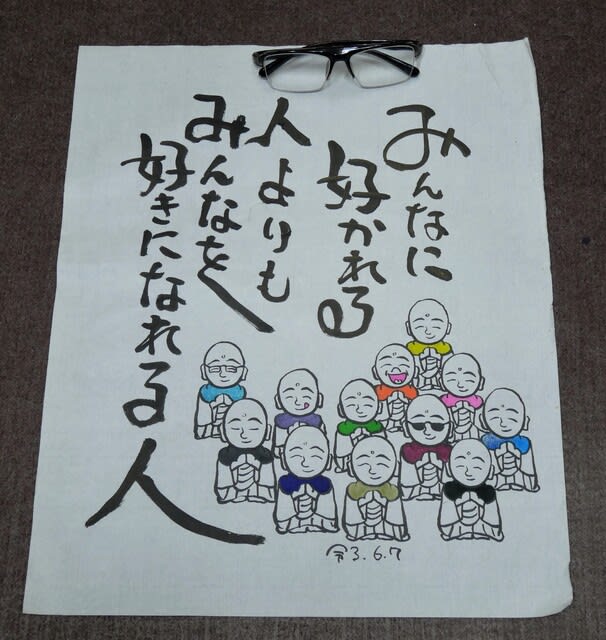 みんなに
好かれる
人よりも
みんなを
好きになれる人
令3.6.7